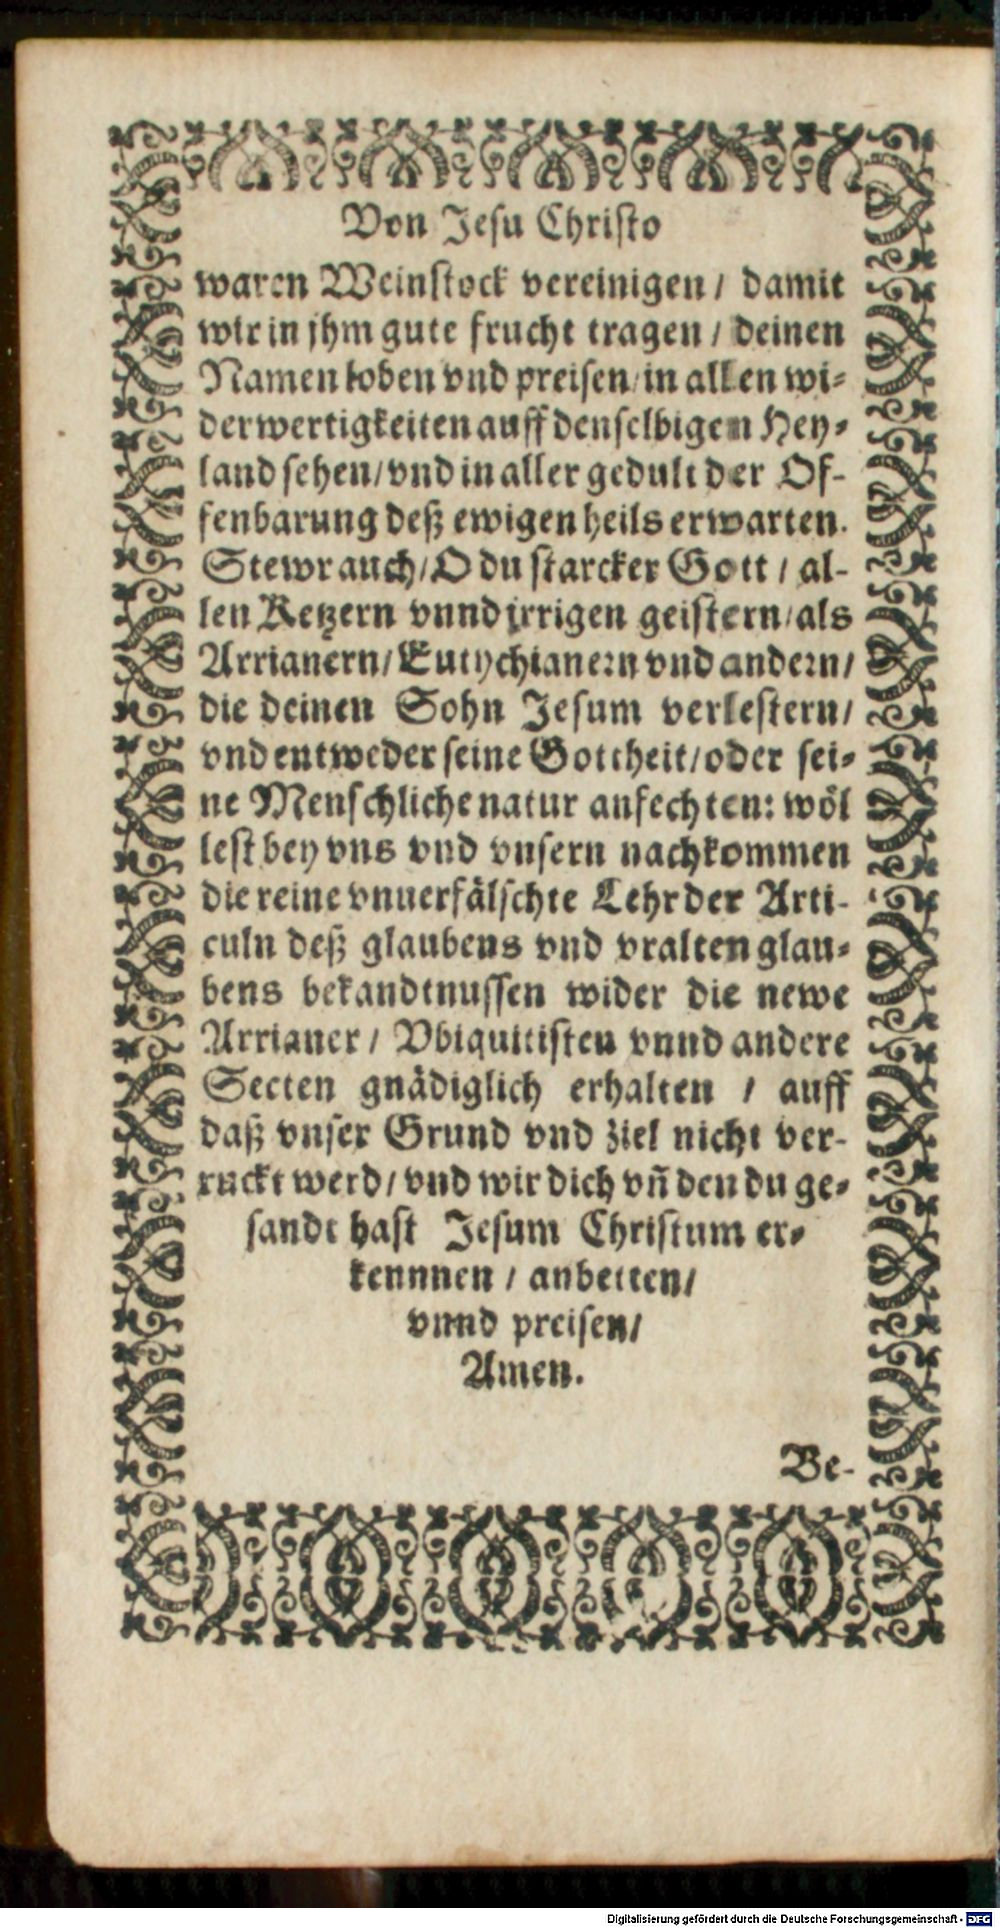 Von Jesu Christo
waren Weinstock vereinigen / damit
wir in jhm gute frucht tragen / deinen
Namen loben vnd preisen / in allen wi-
derwertigkeiten auff denselbigen Hey-
land sehen / vnd in aller gedult der Of-
fenbarung deß ewigen heils erwarten.
Stewr auch / O du starcker Gott / al-
len Ketzern vnnd jrrigen geistern / als
Arrianern / Eutychianern vnd andern /
die deinen Sohn Jesum verlestern /
vnd entweder seine Gottheit / oder sei-
ne Menschliche natur anfechten: wöl
lest bey vns vnd vnsern nachkommen
die reine vnuerfälschte Lehr der Arti-
culn deß glaubens vnd vralten glau-
bens bekandtnussen wider die newe
Arrianer / Vbiquitisten vnnd andere
Secten gnädiglich erhalten / auff
daß vnser Grund vnd ziel nicht ver-
ruckt werd / vnd wir dich vñ den du ge-
sandt hast Jesum Christum er-
kennnen / anbetten /
vnnd preisen /
Amen.
Be-
Digitalisierung gefördert durch die Deutsche Forschungsgemeinschaft - DFG